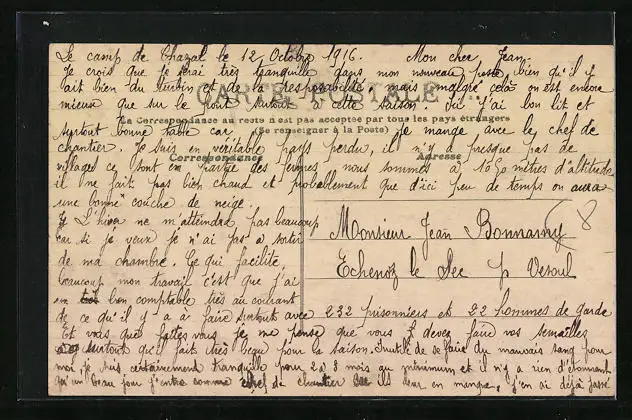 Le camp de Chazal le 12 Octobre 1916. Mon cher Jean.
Je crois que je serai très tranquille dans mon nouveau poste, bien qu'il y
ait bien du turbin et de la responsabilité, mais malgré cela on est encore
mieux que sur le front surtout à cette saison. Ici j'ai bon lit et
CARTE POSTALE
La Correspondance au recto n'est pas acceptée par tous les pays étrangers
(Se renseigner à la Poste)
surtout bonne table car je mange avec le chef de
chantier. Je suis en véritable pays perdu, il n'y a presque pas de
Correspondance
Adresse
villages ce sont en partie des fermes nous sommes à 1050 mètres d'altitude
il ne fait pas bien chaud et probablement que d'ici peu de temps on aura
une bonne couche de neige.
L'hiver ne m'atteindra pas beaucoup
car si je veux je n'ai pas à sortir
de ma chambre. Ce qui facilite
beaucoup mon travail c'est que j'ai
un bon comptable très au courant
de ce qu'il y a à faire surtout avec 232 prisonniers et 22 hommes de garde
Monsieur Jean Bonnamy
Echenoz le Sec p Vesoul
8
Et vous que faites vous je me pense que vous devez faire vos semailles
surtout qu'il fait très beau pour la saison. Inutile de se faire du mauvais sang pour
moi, je suis certainement tranquille pour 2 à 3 mois au minimum et il n'y a rien d'étonnant
qu'un beau jour j'entre comme chef de chantier ils leur en manque, j'en ai déjà